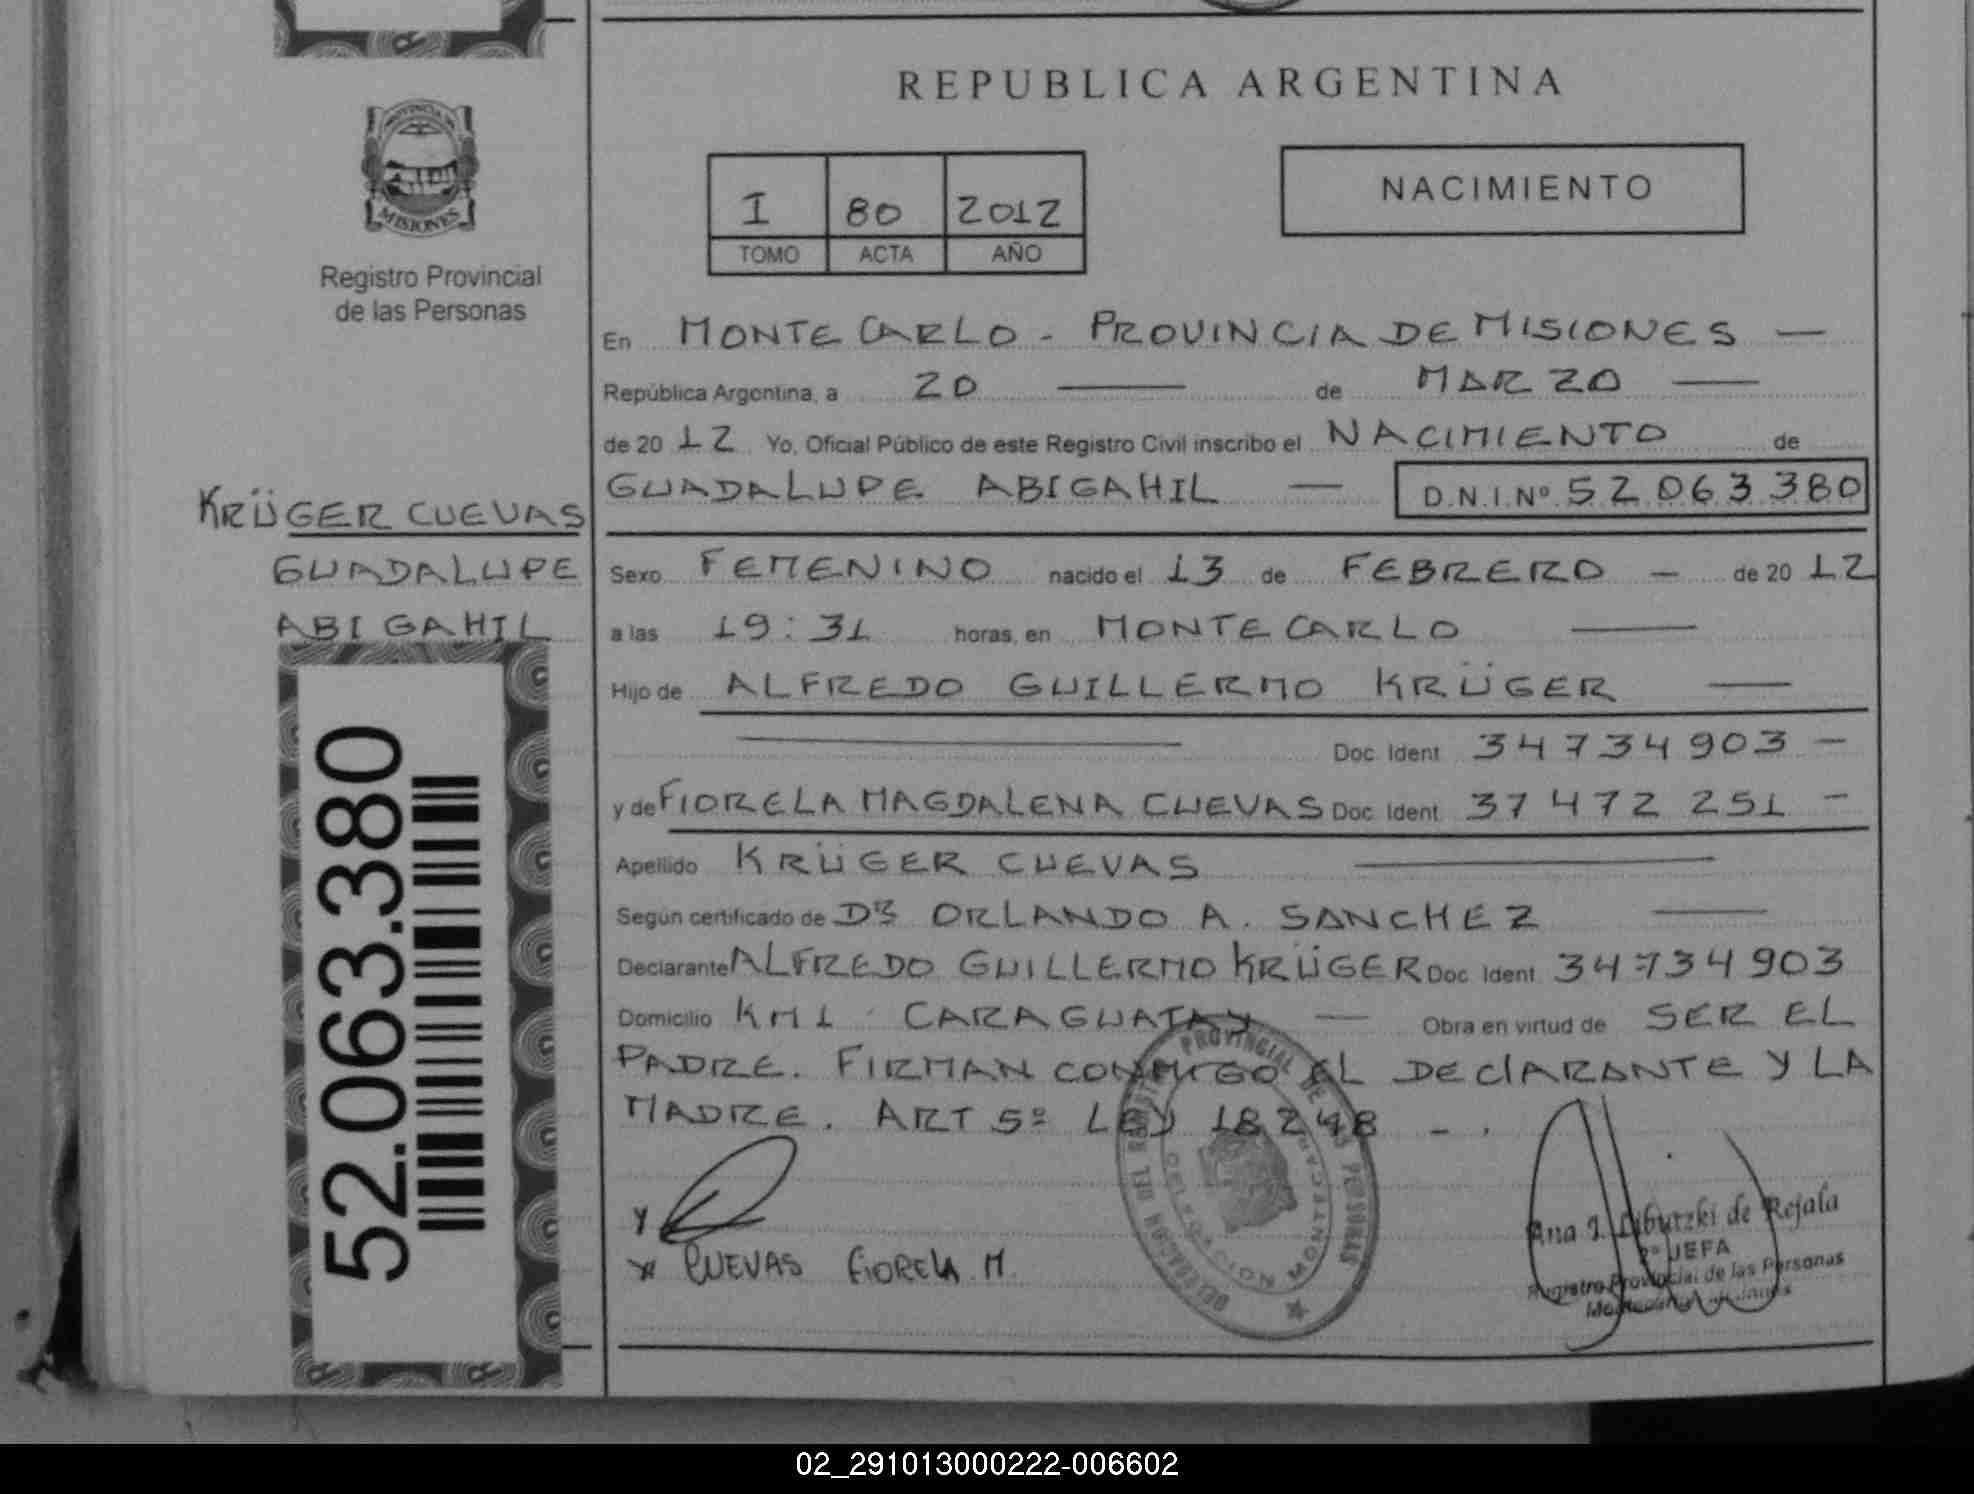 REPUBLICA ARGENTINA
NACIMIENTO
I 80 2012
TOMO ACTA AÑO
PROVINCIA DE
MISIONES
Registro Provincial
de las Personas
En MONTECARLO - PROVINCIA DE MISIONES —
República Argentina, a 20 — de MARZO —
de 20 12 Yo, Oficial Público de este Registro Civil inscribo el NACIMIENTO de
GUADALUPE ABIGAHIL — D.N.I.Nº 52 063 380
KRÜGER CUEVAS
GUADALUPE
ABIGAHIL
Sexo FEMENINO nacido el 13 de FEBRERO — de 20 12
a las 19:31 horas, en MONTECARLO —
Hijo de ALFREDO GUILLERMO KRÜGER —
— Doc. Ident 34734903 —
y de FIORELA MAGDALENA CUEVAS Doc. Ident 37 472 251 —
Apellido KRÜGER CUEVAS —
Según certificado de DR ORLANDO A. SANCHEZ —
Declarante ALFREDO GUILLERMO KRÜGER Doc. Ident 34734903
Domicilio KM 1 CARAGUATAY — Obra en virtud de SER EL
PADRE. FIRMAN CONMIGO EL DECLARANTE Y LA
MADRE. ART 5º LEY 18248 - .
52.063.380
CUEVAS FIORELA M.
PROVINCIAL DE LAS PERSONAS
Ana I. de Rejala
2º JEFA
Registro Provincial de las Personas
02_291013000222-006602